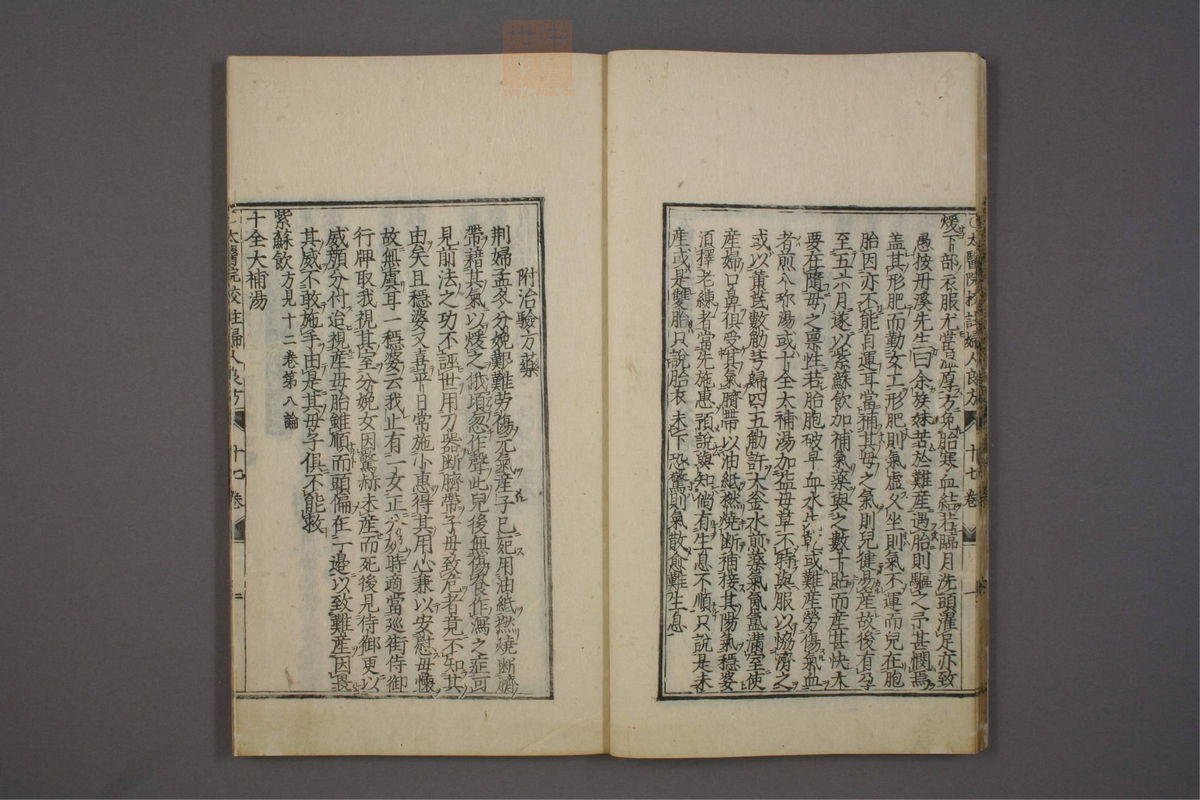 太醫院校註婦人良方 十七卷 一
煖下部衣服尤當溫厚方免胎寒血結若臨月洗頭濯足亦致
愚按丹溪先生曰余族妹苦於難產遇胎則驅之予甚憫焉
蓋其形肥而勤女工形肥則氣虛久坐則氣不運而兒在胞
胎因亦不能自運耳當補其母之氣則兒健易產故後有孕
至五六月遂以紫蘇飲加補氣藥與之數十貼而產甚快大
要在隨母之稟性若胎胞破早血水先乾或難產勞傷氣血
者煎八珍湯或十全大補湯加益母草不時與服以恊濟之
或以黃芪數觔芎歸四五觔許大釜水煎藥氣氤氳滿室使
產婦口鼻俱受其氣臍帶以油紙撚燒斷補接其陽氣穩婆
須擇老練者當先施惠預說與知倘有生息不順只說是未
產或是雙胎只說胎衣未下恐驚則氣散愈難生息
附治驗方藥
荆婦孟冬分娩艱難勞傷元氣產子已死用油紙撚燒斷臍
帶藉其氣以煖之俄頃忽作聲此兒後無傷食作瀉之症可
見前法之功不誣世用刀器斷臍帶子母致危者竟不知其
由矣且穩婆又喜平日常施小惠得其用心兼以安慰母懷
故無虞耳一穩婆云我止有一女正分娩時適當巡街侍御
行牌取我視其室分娩女因驚跡未產而死後見侍御更以
威顏分付迨視產母胎雖順而頭偏在一邊以致難產因畏
其威不敢施手由是其母子俱不能救
紫蘇飲方見十二卷第八論
十全大補湯
太醫院校註婦人良方 十七卷 二